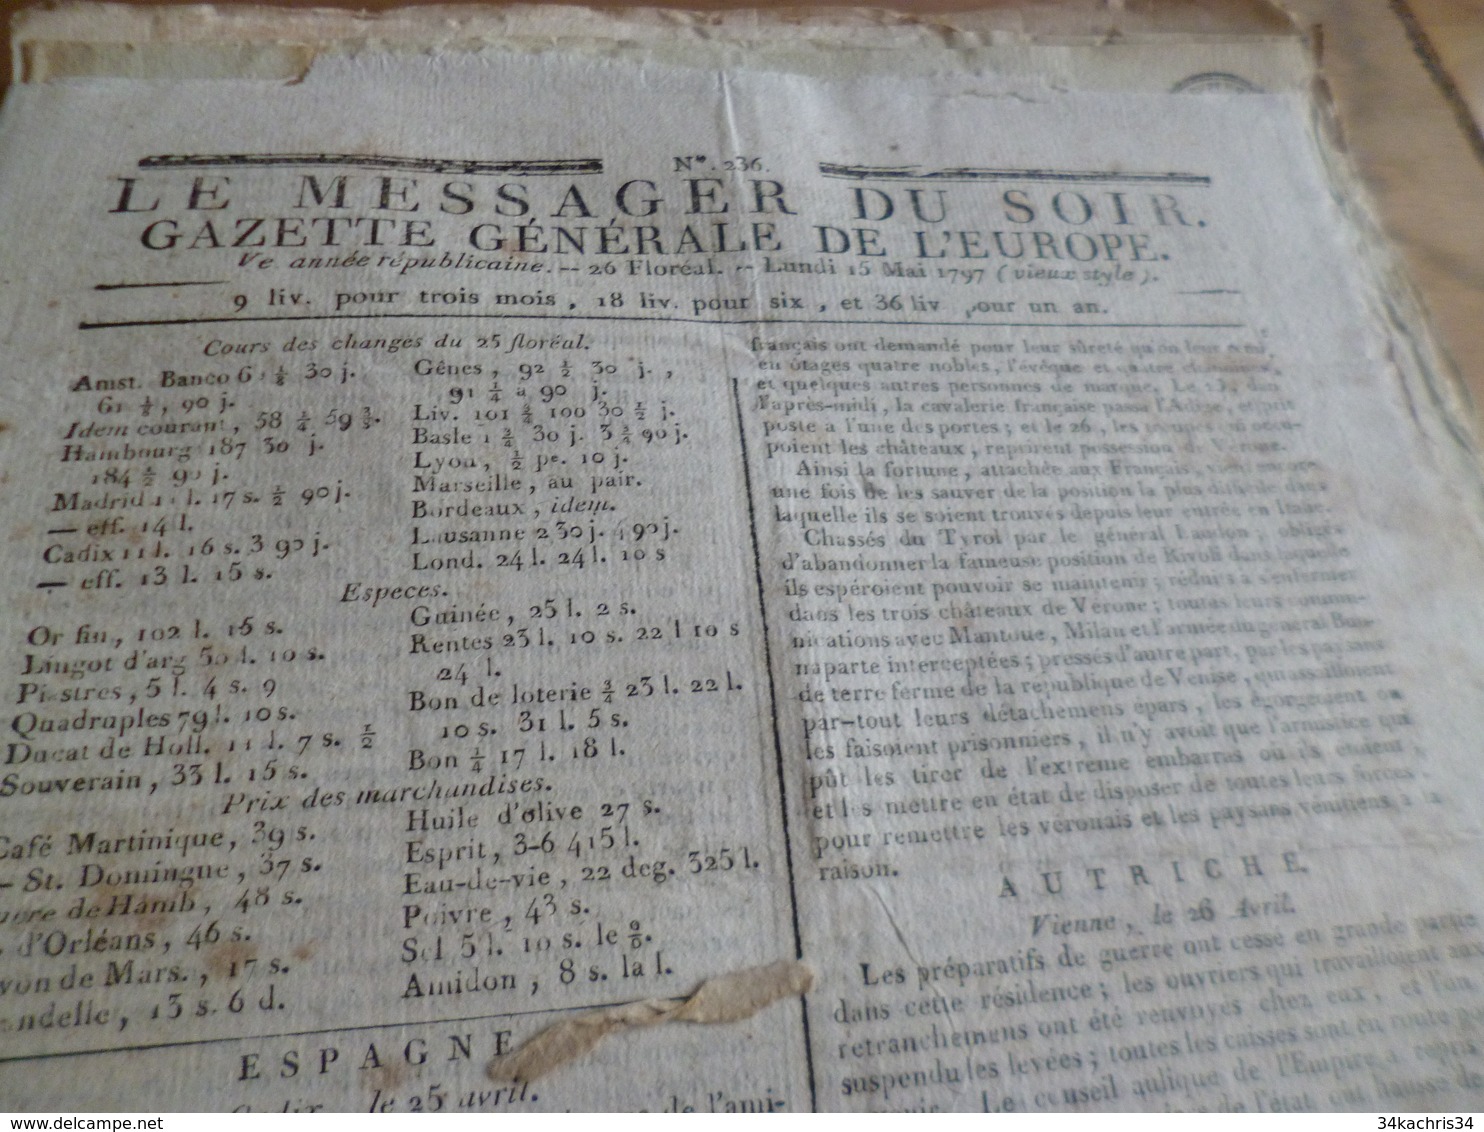 N°. 236.
LE MESSAGER DU SOIR.
GAZETTE GÉNÉRALE DE L'EUROPE.
Ve année républicaine. -- 26 Floréal. -- Lundi 15 Mai 1797 (vieux style).
9 liv. pour trois mois, 18 liv. pour six, et 36 liv pour un an.
Cours des changes du 25 floréal.
Amst. Banco 30 j.
61 ½, 90 j.
Idem courant, 58 ¼ 59
Hambourg 187 30 j.
184 ½ 90 j.
Madrid 11 l. 17 s. ½ 90 j.
— eff. 14 l.
Cadix 11 l. 16 s. 3 90 j.
— eff. 13 l. 15 s.
Gênes, 92 ½ 30 j.,
91 ¼ à 90 j.
Liv. 101 ¾ 100 30 ½ j.
Basle 1 ¾ 30 j. 3 ¾ 90 j.
Lyon, ½ pe. 10 j.
Marseille, au pair.
Bordeaux, idem.
Lausanne 2 30 j. 4 90 j.
Lond. 24 l. 24 l. 10 s
Especes.
Or fin, 102 l. 15 s.
Lingot d'arg 50 l. 10 s.
Piastres, 5 l. 4 s. 9
Quadruples 79 l. 10 s.
Ducat de Holl. 11 l. 7 s. ½
Souverain, 33 l. 15 s.
Guinée, 25 l. 2 s.
Rentes 23 l. 10 s. 22 l 10 s
24 l.
Bon de loterie ¾ 23 l. 22 l.
10 s. 31 l. 5 s.
Bon ¼ 17 l. 18 l.
Prix des marchandises.
Café Martinique, 39 s.
— St. Domingue, 37 s.
de Hamb, 48 s.
d'Orléans, 46 s.
de Mars., 17 s.
13 s. 6 d.
Huile d'olive 27 s.
Esprit, 3-6 415 l.
Eau-de-vie, 22 deg. 325 l.
Poivre, 43 s.
Sel 5 l. 10 s. le %.
Amidon, 8 s. la l.
ESPAGNE
Cadix le 25 avril.
de l'ami-
français ont demandé pour leur sûreté qu'on leur
en ôtages quatre nobles, l'évêque et quatre
et quelques autres personnes de marque. Le
l'après-midi, la cavalerie française passa l'Adige, et prit
poste à l'une des portes; et le 26, les troupes qui occu-
poient les châteaux, reprirent possession de Vérone.
Ainsi la fortune, attachée aux Français, vient encore
une fois de les sauver de la position la plus difficile dans
laquelle ils se soient trouvés depuis leur entrée en Italie.
Chassés du Tyrol par le général Laudon; obligés
d'abandonner la fameuse position de Rivoli dans laquelle
ils espéroient pouvoir se maintenir; réduits à s'enfermer
dans les trois châteaux de Vérone; toutes leurs commu-
nications avec Mantoue, Milan et l'armée du général Buo-
naparte interceptées; pressés d'autre part, par les paysans
de terre ferme de la république de Venise, qui assailloient
par-tout leurs détachemens épars, les égorgeoient ou
les faisoient prisonniers, il n'y avoit que l'armistice qui
pût les tirer de l'extrême embarras où ils étoient,
et les mettre en état de disposer de toutes leurs forces,
pour remettre les véronais et les paysans vénitiens à la
raison.
AUTRICHE.
Vienne, le 26 Avril.
Les préparatifs de guerre ont cessé en grande partie
dans cette résidence; les ouvriers qui travailloient aux
retranchemens ont été renvoyés chez eux, et l'on
suspendu les levées; toutes les caisses sont en route
Le conseil aulique de l'Empire a repris
de l'état ont haussé de
34kachris34